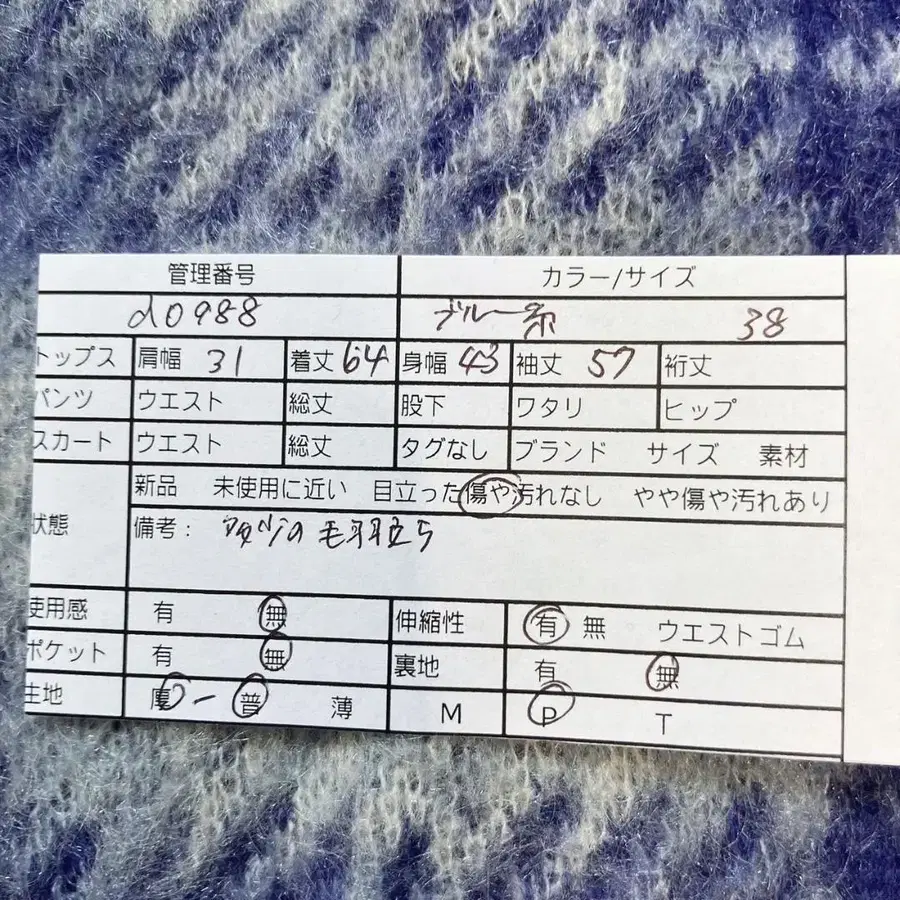 管理番号 カラー/サイズ
d0988 ブルー系 38
トップス 肩幅 31 着丈 64 身幅 43 袖丈 57 裄丈
パンツ ウエスト 総丈 股下 ワタリ ヒップ
スカート ウエスト 総丈 タグなし ブランド サイズ 素材
状態 新品 未使用に近い 目立った傷や汚れなし やや傷や汚れあり
備考:
使用感 有 無 伸縮性 有 無 ウエストゴム
ポケット 有 無 裏地 有 無
生地 厚 ー 普 薄 M P T